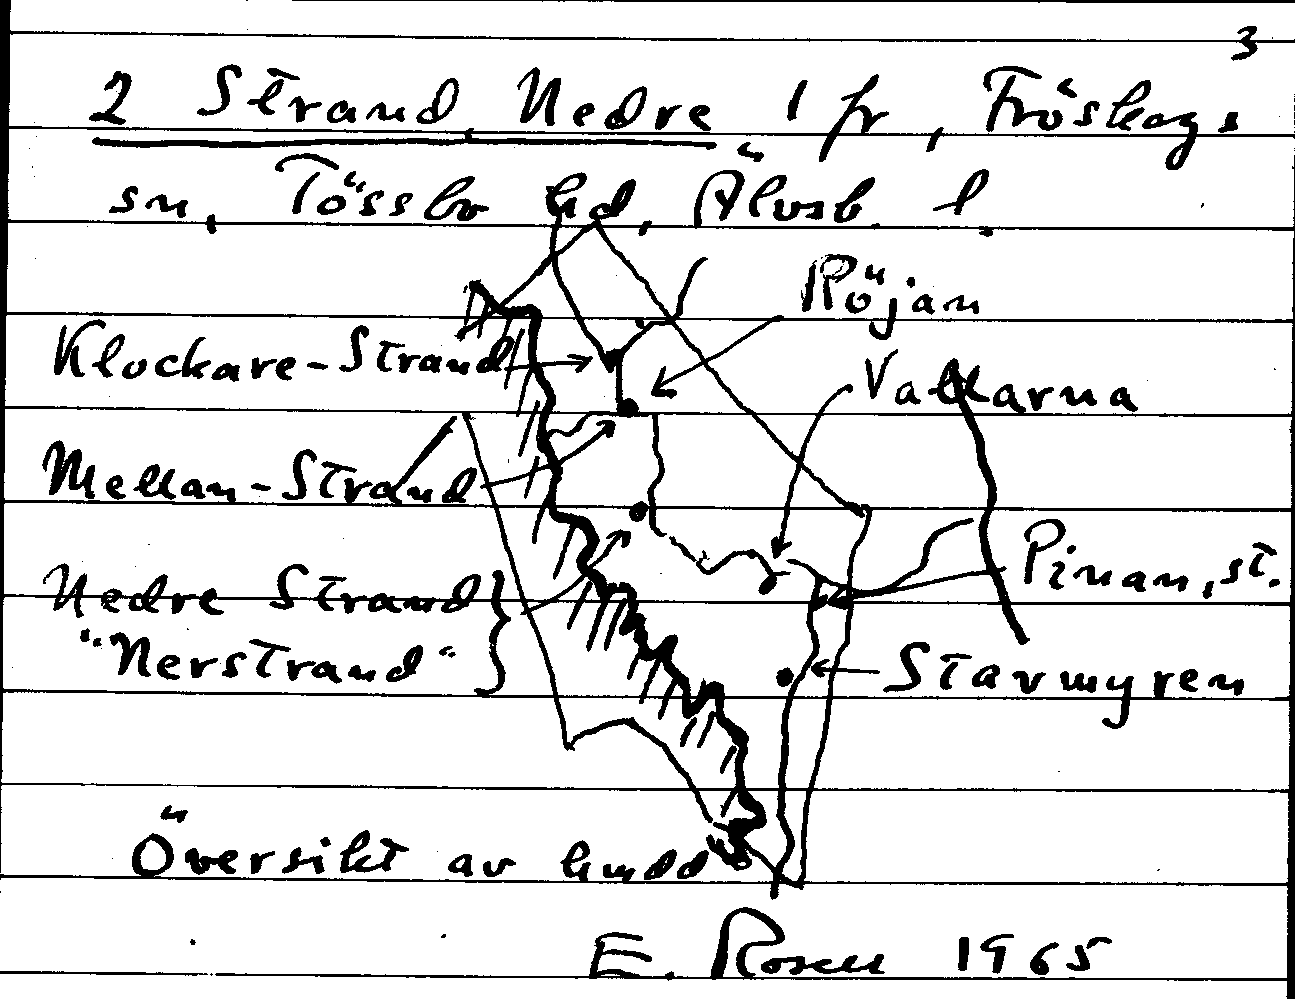 3
2 Strand, Nedre 1 fr, Fröskogs
sn, Tössbo hd, Älvsb. l.
Röjan
Klockare-Strand
Vallarna
Mellan-Strand
Pinan, st.
Nedre Strand
"Nerstrand"
Stavmyren
Översikt av
E. Rosell 1965